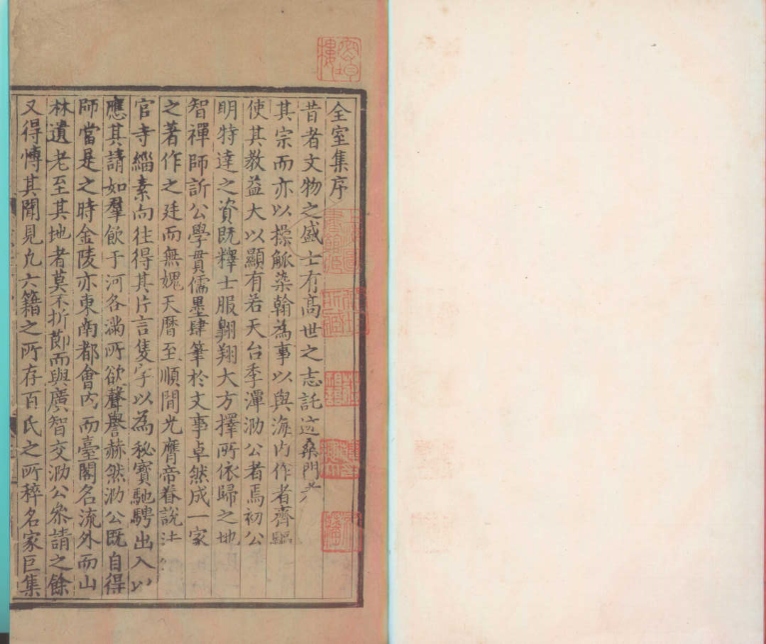 全室集序
昔者文物之盛士有高世之志託迹桑門
其宗而亦以操觚染翰為事以與海内作者齊
使其教益大以顯有若天台季潭泐公者焉初公
明特達之資既釋士服翺翔大方擇所依歸之地
智禪師訢公學貫儒墨肆筆於文事卓然成一家
之著作之廷而無媿天曆至順間光膺帝眷說法
官寺緇素向往得其片言隻字以為秘寶馳騁出入以
應其請如羣飲于河各滿所欲聲譽赫然泐公既自得
師當是之時金陵亦東南都會内而臺閣名流外而山
林遺老至其地者莫不折節而與廣智交泐公叅請之餘
又得愽其聞見凢六籍之所存百氏之所稡名家巨集